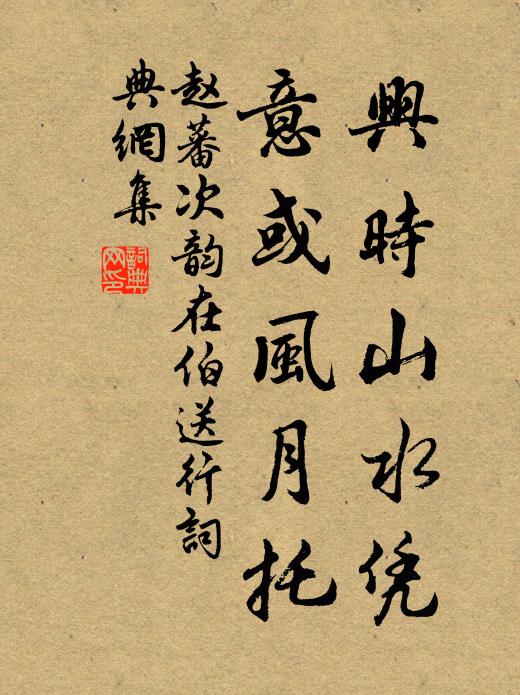 興時山水凭
意或風月托
赵蕃次韵在伯送行詞
典網集
詞典
网印